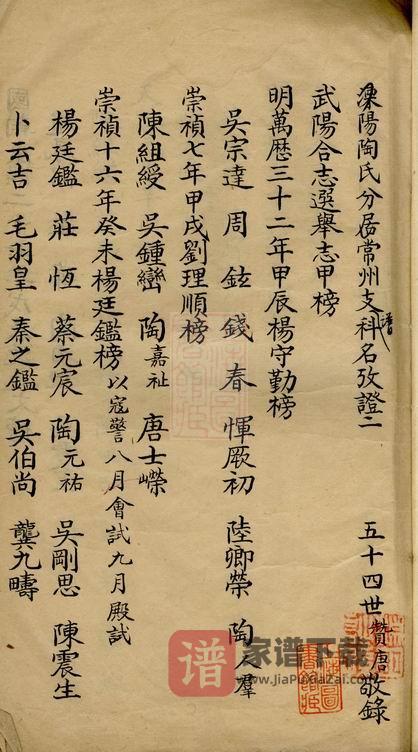 溧陽陶氏分居常州支譜科名攷證二 五十四世贊唐敬錄
武陽合志選舉志甲榜
明萬歷三十二年甲辰楊守勤榜
吳宗達 周鉉 錢春 惲厥初 陸卿榮 陶人羣
崇禎七年甲戌劉理順榜
陳組綬 吳鍾巒 陶嘉祉 唐士嶸
崇禎十六年癸未楊廷鑑榜 以寇警八月會試九月殿試
楊廷鑑 莊恆 蔡元宸 陶元祐 吳剛思 陳震生
卜云吉 毛羽皇 秦之鑑 吳伯尚 龔九疇
谱 家谱下载
www.jiaPuXiaZai.com